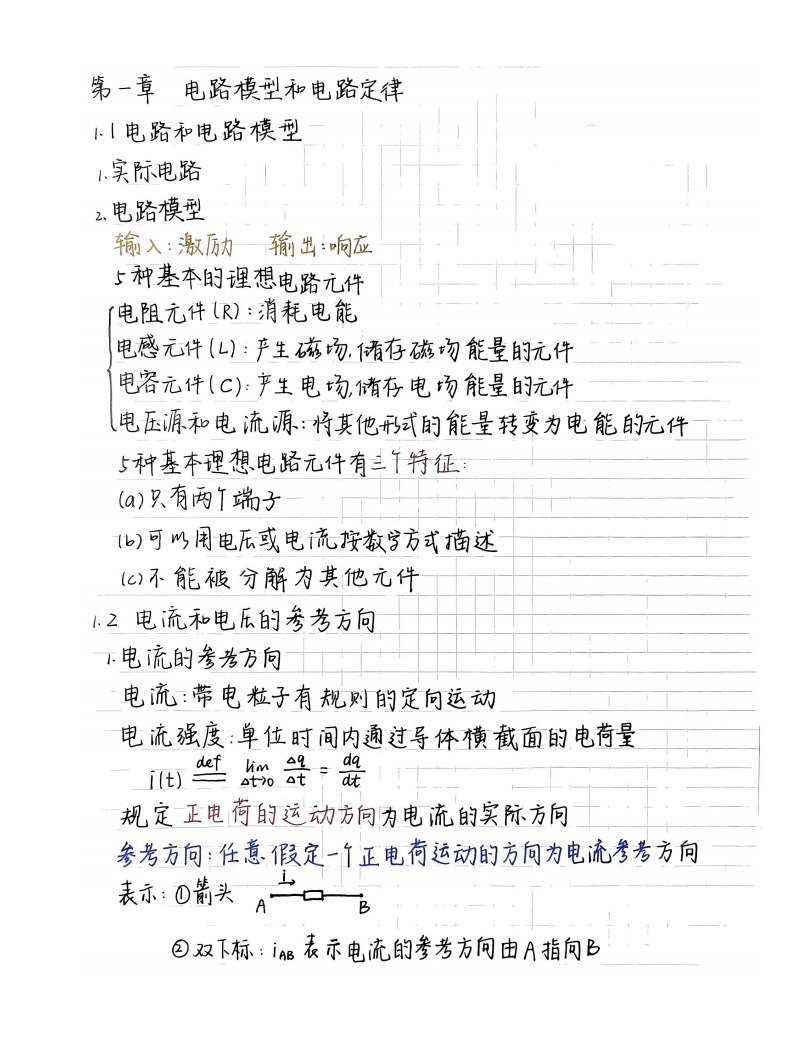 第一章 电路模型和电路定律
1.1 电路和电路模型
1.实际电路
2.电路模型
输入:激励 输出:响应
5种基本的理想电路元件
电阻元件(R):消耗电能
电感元件(L):产生磁场,储存磁场能量的元件
电容元件(C):产生电场,储存电场能量的元件
电压源和电流源:将其他形式的能量转变为电能的元件
5种基本理想电路元件有三个特征:
(a)只有两个端子
(b)可以用电压或电流按数学方式描述
(c)不能被分解为其他元件
1.2 电流和电压的参考方向
1.电流的参考方向
电流:带电粒子有规则的定向运动
电流强度:单位时间内通过导体横截面的电荷量
i(t) def= lim Δt→0 Δq/Δt = dq/dt
规定正电荷的运动方向为电流的实际方向
参考方向:任意假定一个正电荷运动的方向为电流参考方向
表示:①箭头 A i B
②双下标:iAB 表示电流的参考方向由A指向B